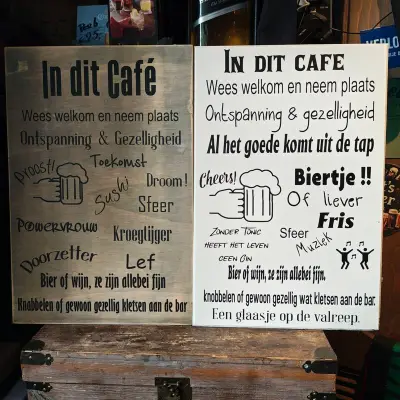 In dit Café
Wees welkom en neem plaats
Ontspanning & Gezelligheid
Proost!
Toekomst
Sushi
Droom!
Sfeer
Powervrouw
Kroegtijger
Doorzetter
Lef
Bier of wijn, ze zijn allebei fijn
Knobbelen of gewoon gezellig kletsen aan de bar
IN DIT CAFE
Wees welkom en neem plaats
Ontspanning & gezelligheid
Al het goede komt uit de tap
Cheers!
Biertje !!
Of liever
Fris
ZONDER TONIC
HEEFT HET LEVEN
GEEN GIN
Sfeer
Muziek
Bier of wijn, ze zijn allebei fijn,
knobbelen of gewoon gezellig wat kletsen aan de bar.
Een glaasje op de valreep.